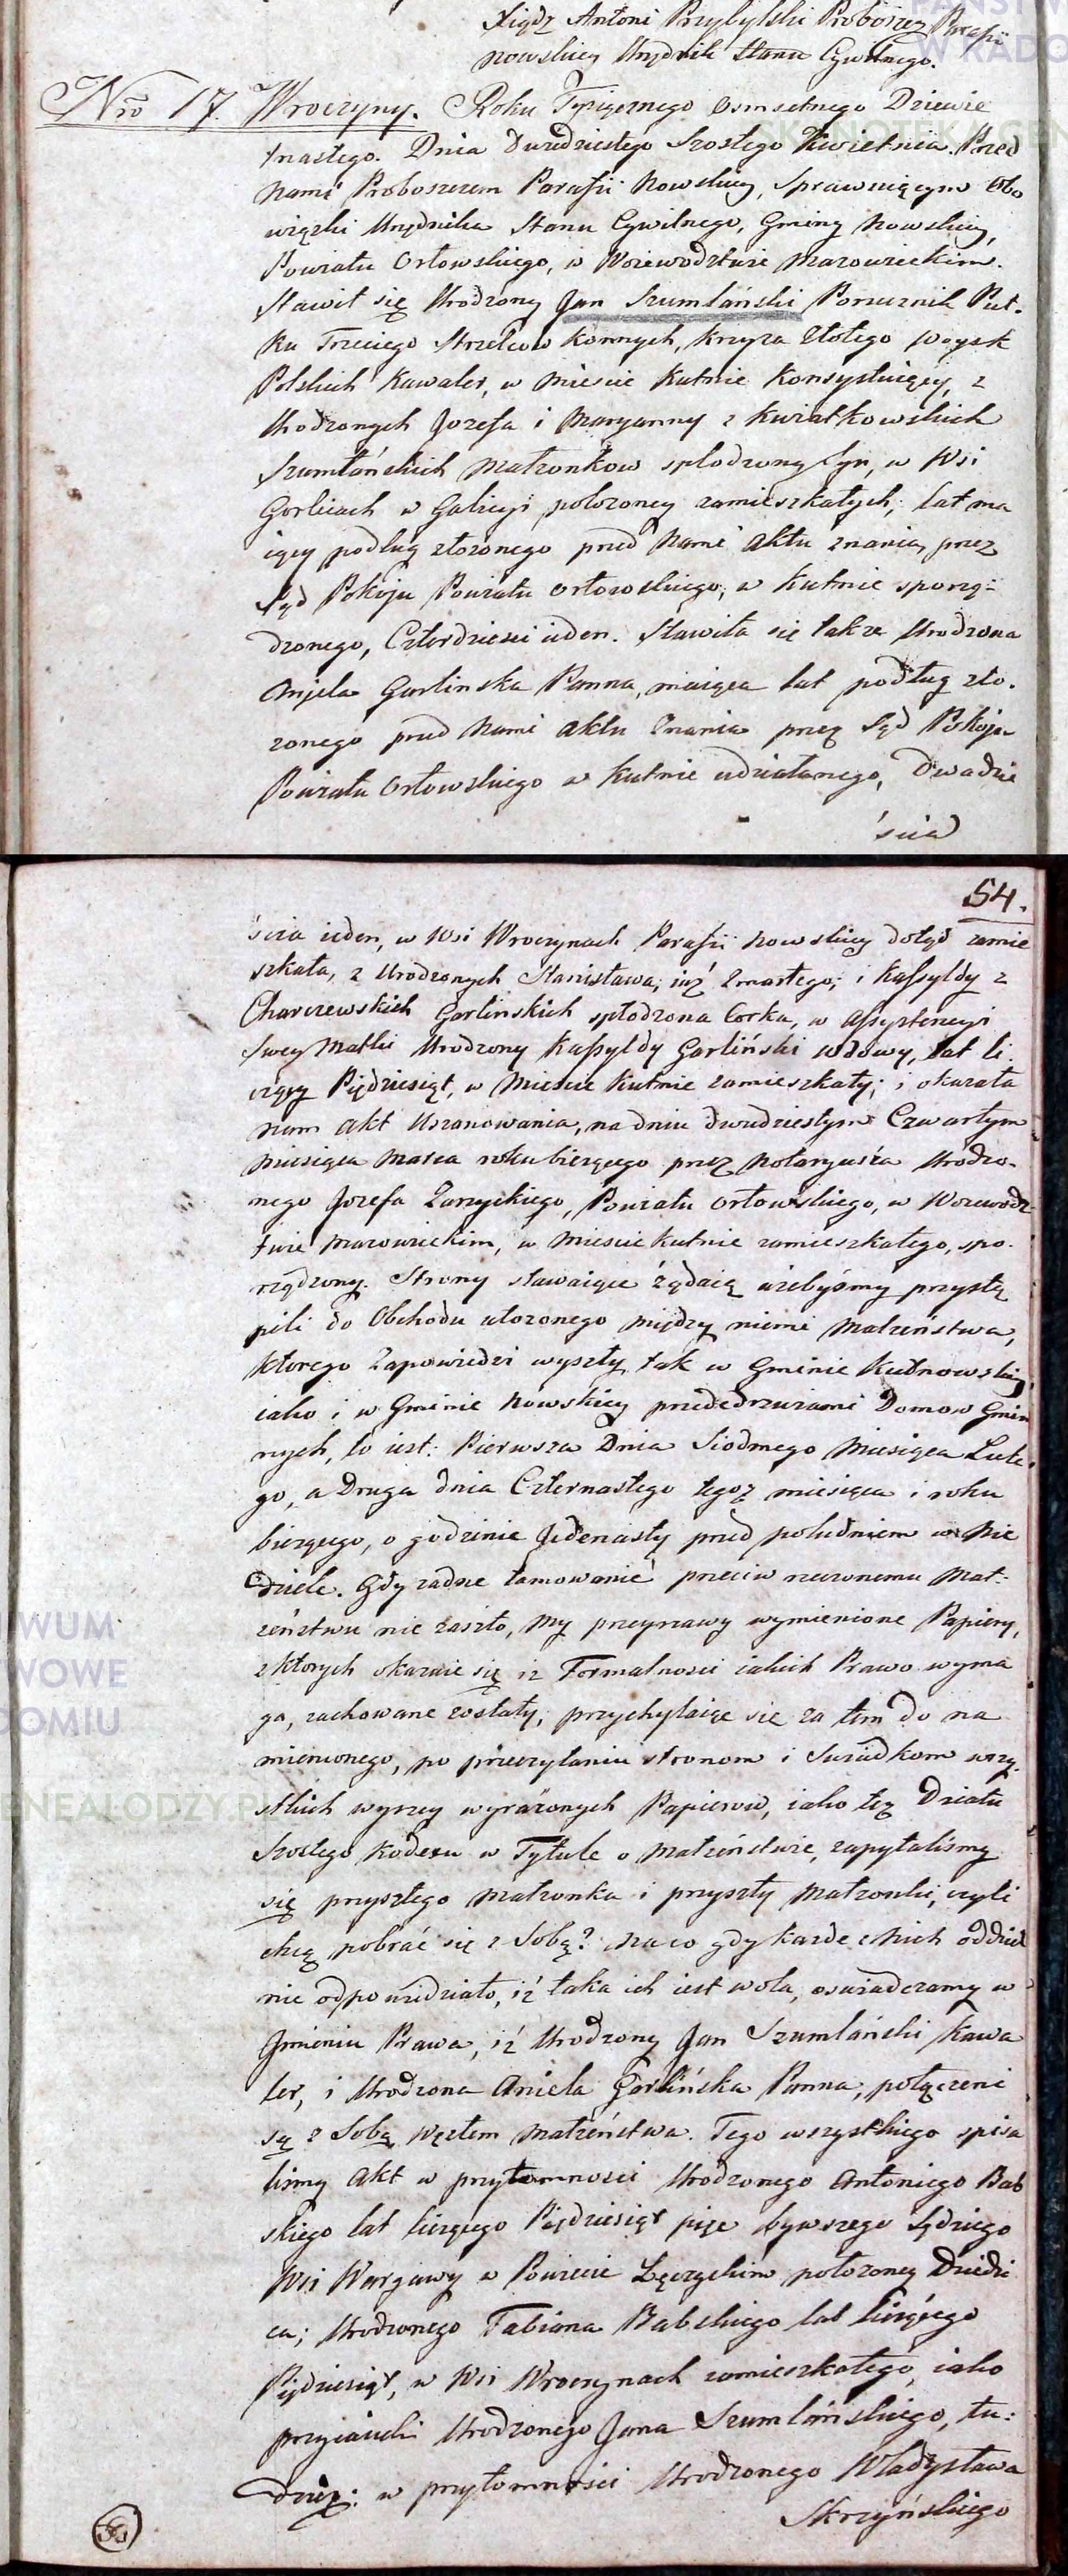 Xiądz Antoni Przybylski Proboszcz Parafii
nowskiey Urzędnik Stanu Cywilnego.
Nro 17. Wroczyny. Roku Tysiącznego Osmsetnego Dziewie
tnastego. Dnia Dwudziestego Szostego Kwietnia. Przed
Nami Proboszczem Parafii Nowskiey, Sprawuiącym Obo
wiązki Urzędnika Stanu Cywilnego, Gminy Nowskiey,
Powiatu Orłowskiego, w Woiewodztwie Mazowieckim.
Stawił się Urodzony Jan Szumlański Porucznik Puł-
ku Trzeciego Strzelcow Konnych, Krzyża Złotego Woysk
Polskich Kawaler, w Miescie Kutnie Konsystuiący, z
Urodzonych Jozefa i Maryanny z Kwiatkowskich
Szumlańskich Małżonkow spłodzony Syn, w Wsi
Gorlicach w Galicyi położoney zamieszkałych; lat ma
iący podług złożonego przed Nami Aktu Znania, przez
Sąd Pokoju Powiatu Orłowskiego, w Kutnie sporzą-
dzonego, Czterdzieści ieden. Stawiła się także Urodzona
Anjela Garlinska Panna, maiąca lat podług zło-
żonego przed Nami Aktu Znania przez Sąd Pokoju
Powiatu Orłowskiego w Kutnie udziałanego, Dwadzie
ścia
54.
ścia ieden, w Wsi Wroczynach Parafii Nowskiey dotąd zamie
szkała, z Urodzonych Stanisława, iuż Zmarłego; i Kassyldy z
Charczewskich Garlinskich spłodzona Corka, w Assystencyi
Swey Matki Urodzony Kassyldy Garliński Wdowy, Lat li
czący Pięдziesiąt, w Miescie Kutnie zamieszkały; i okazała
nam Akt Uszanowania, na dniu dwudziestym Czwartym
Miesiąca Marca roku bieżącego przez Notaryusza Urodzo-
nego Jozefa Zarzyckiego, Powiatu Orłowskiego, w Woiewodz-
twie Mazowieckim, w Miescie Kutnie zamieszkałego, spo-
rządzony. Strony stawaiące żądaią ażebyśmy przystą
pili do Obchodu ułożonego między niemi Małżeństwa,
ktorego Zapowiedzi wyszły tak w Gminie Kutnowskiey,
iako i w Gminie Nowskiey przededrzwiami Domow Gmin
nych, to iest: Pierwsza Dnia Siodmego Miesiąca Lute
go, a Druga dnia Czternastego tegoż miesiąca i roku
bieżącego, o godzinie Jedenasty przed południem w Nie
dziele. Gdy żadne tamowanie przeciw rzeczonemu Mał-
żeństwu nie zaszło, My przeyrzawy wymienione Papiery,
z ktorych okazuie się iż Formalności iakich Prawo wyma
ga, zachowane zostały, przychylaiąc się za tem do na
mienionego, po przeczytaniu stronom i Swiadkom wszy-
stkich wyżey wyrażonych Papierow, iako też Działu
Szostego Kodexu w Tytule o Małżeństwie, zapytaliśmy
się przyszłego Małżonka i przyszły Małżonki, czyli
chcą pobrać się z Sobą? Na co gdy każde z Nich oddziel
nie odpowiedziało, iż taka ich iest wola, oswiadczamy w
Jmieniu Prawa, iż Urodzony Jan Szumlański Kawa
ler, i Urodzona Aniela Garlińska Panna, połączeni
są z Sobą Węzłem Małżeństwa. Tego wszystkiego spisa
liśmy Akt w przytomności Urodzonego Antoniego Bab
skiego lat liczącego Pięдziesiąt pięc bywszego Sędziego
Wsi Wargawy w Powiecie Łęczyckim położoney Dziedzi
ca; Urodzonego Fabiana Babskiego lat liczącego
Pięдziesiąt, w Wsi Wroczynach zamieszkałego, iako
przyiacieli Urodzonego Jana Szumlańskiego, tu-
dzież: w przytomności Urodzonego Władysława
Skrzyńskiego